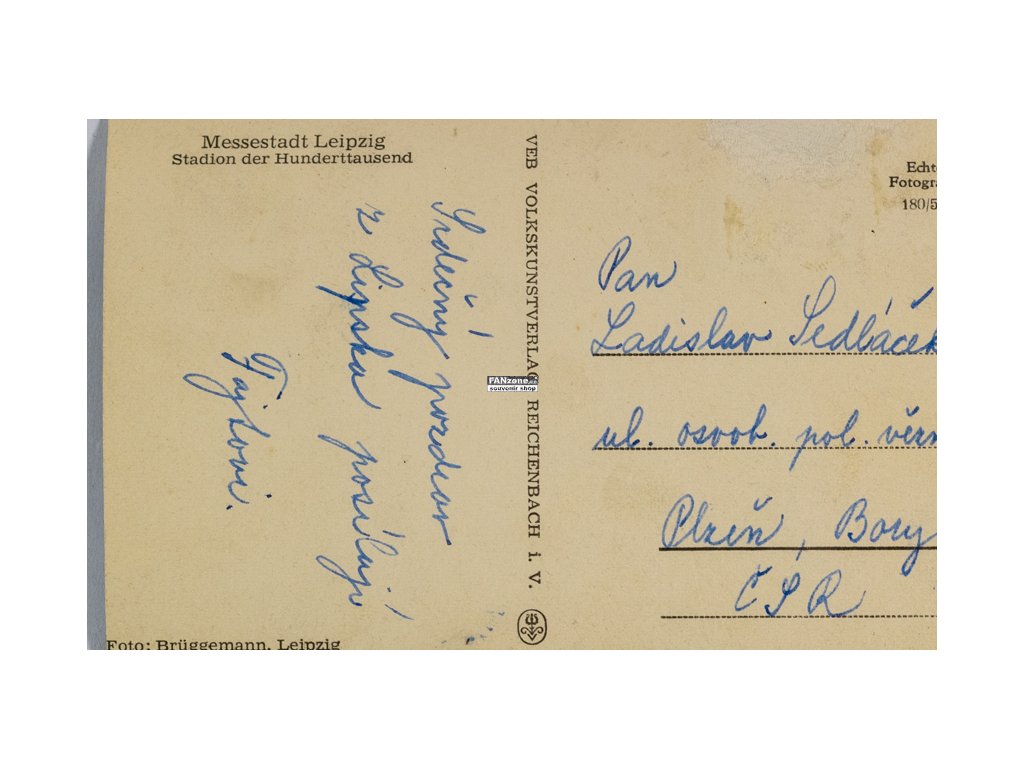 Messestadt Leipzig
Stadion der Hunderttausend
Srdečný pozdrav
z Lipska posílají
Fajtovi.
Foto: Brüggemann, Leipzig
VEB VOLKSKUNSTVERLAG REICHENBACH i. V.
FANzone.cz
souvenir shop
Echt
Fotogra
180/5
Pan
Ladislav Sedláček
ul. osvob. pol. věz
Plzeň, Bory
ČSR